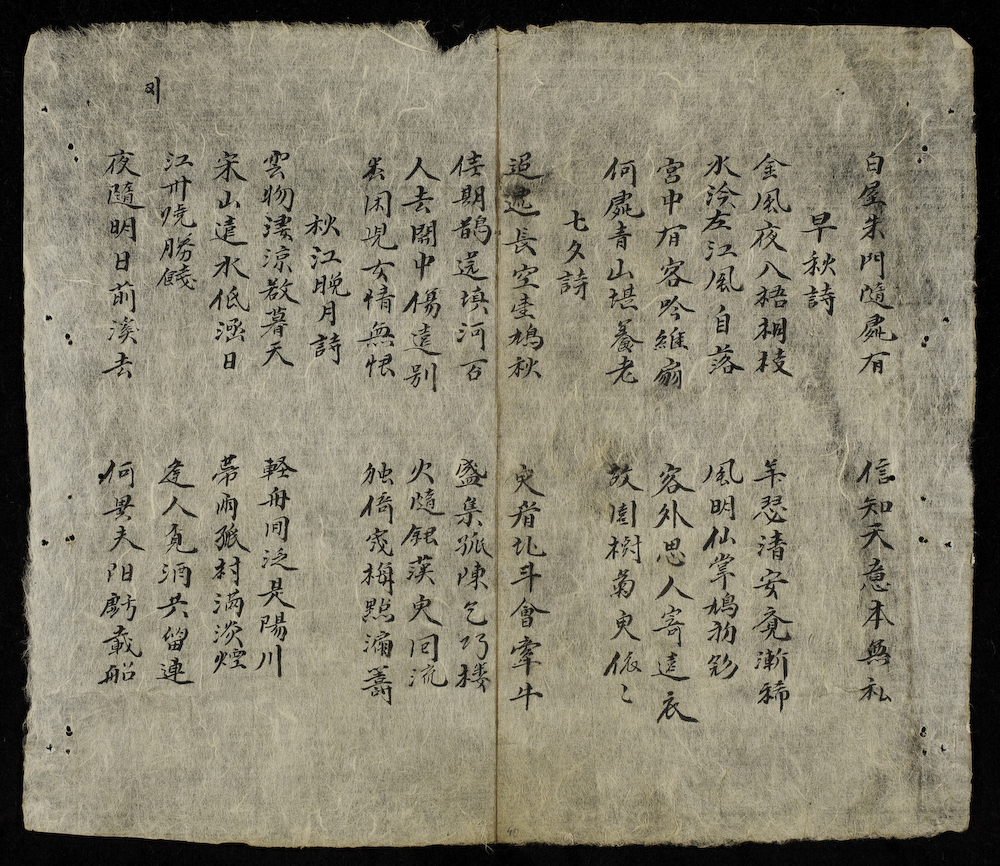 白屋朱門隨處有 信知天意本無私
早秋詩
金風夜八梧桐枝 瑟清安覔漸稀
水冷左江風自落 風明仙掌鳩
宮中有客吟維扇 客外思人寄遠衣
何處青山堪養老 故園樹菊更依〻
七夕詩
迢遞長空鳩秋 更看北斗會牽牛
佳期鵲遶填河石 盛集孤陳乞巧楼
人去關中傷遠别 火隨銀漢更同流
困児女情無恨 独倚梅點漏籌
秋江晚月詩
雲物凄涼啟暮天 軽舟閒泛是陽川
宋山遠水低涵日 帶雨孤村滿淡煙
江燒勝餞 逢人覓酒共留連
夜隨明日前溪去 何異夫阳虧載船